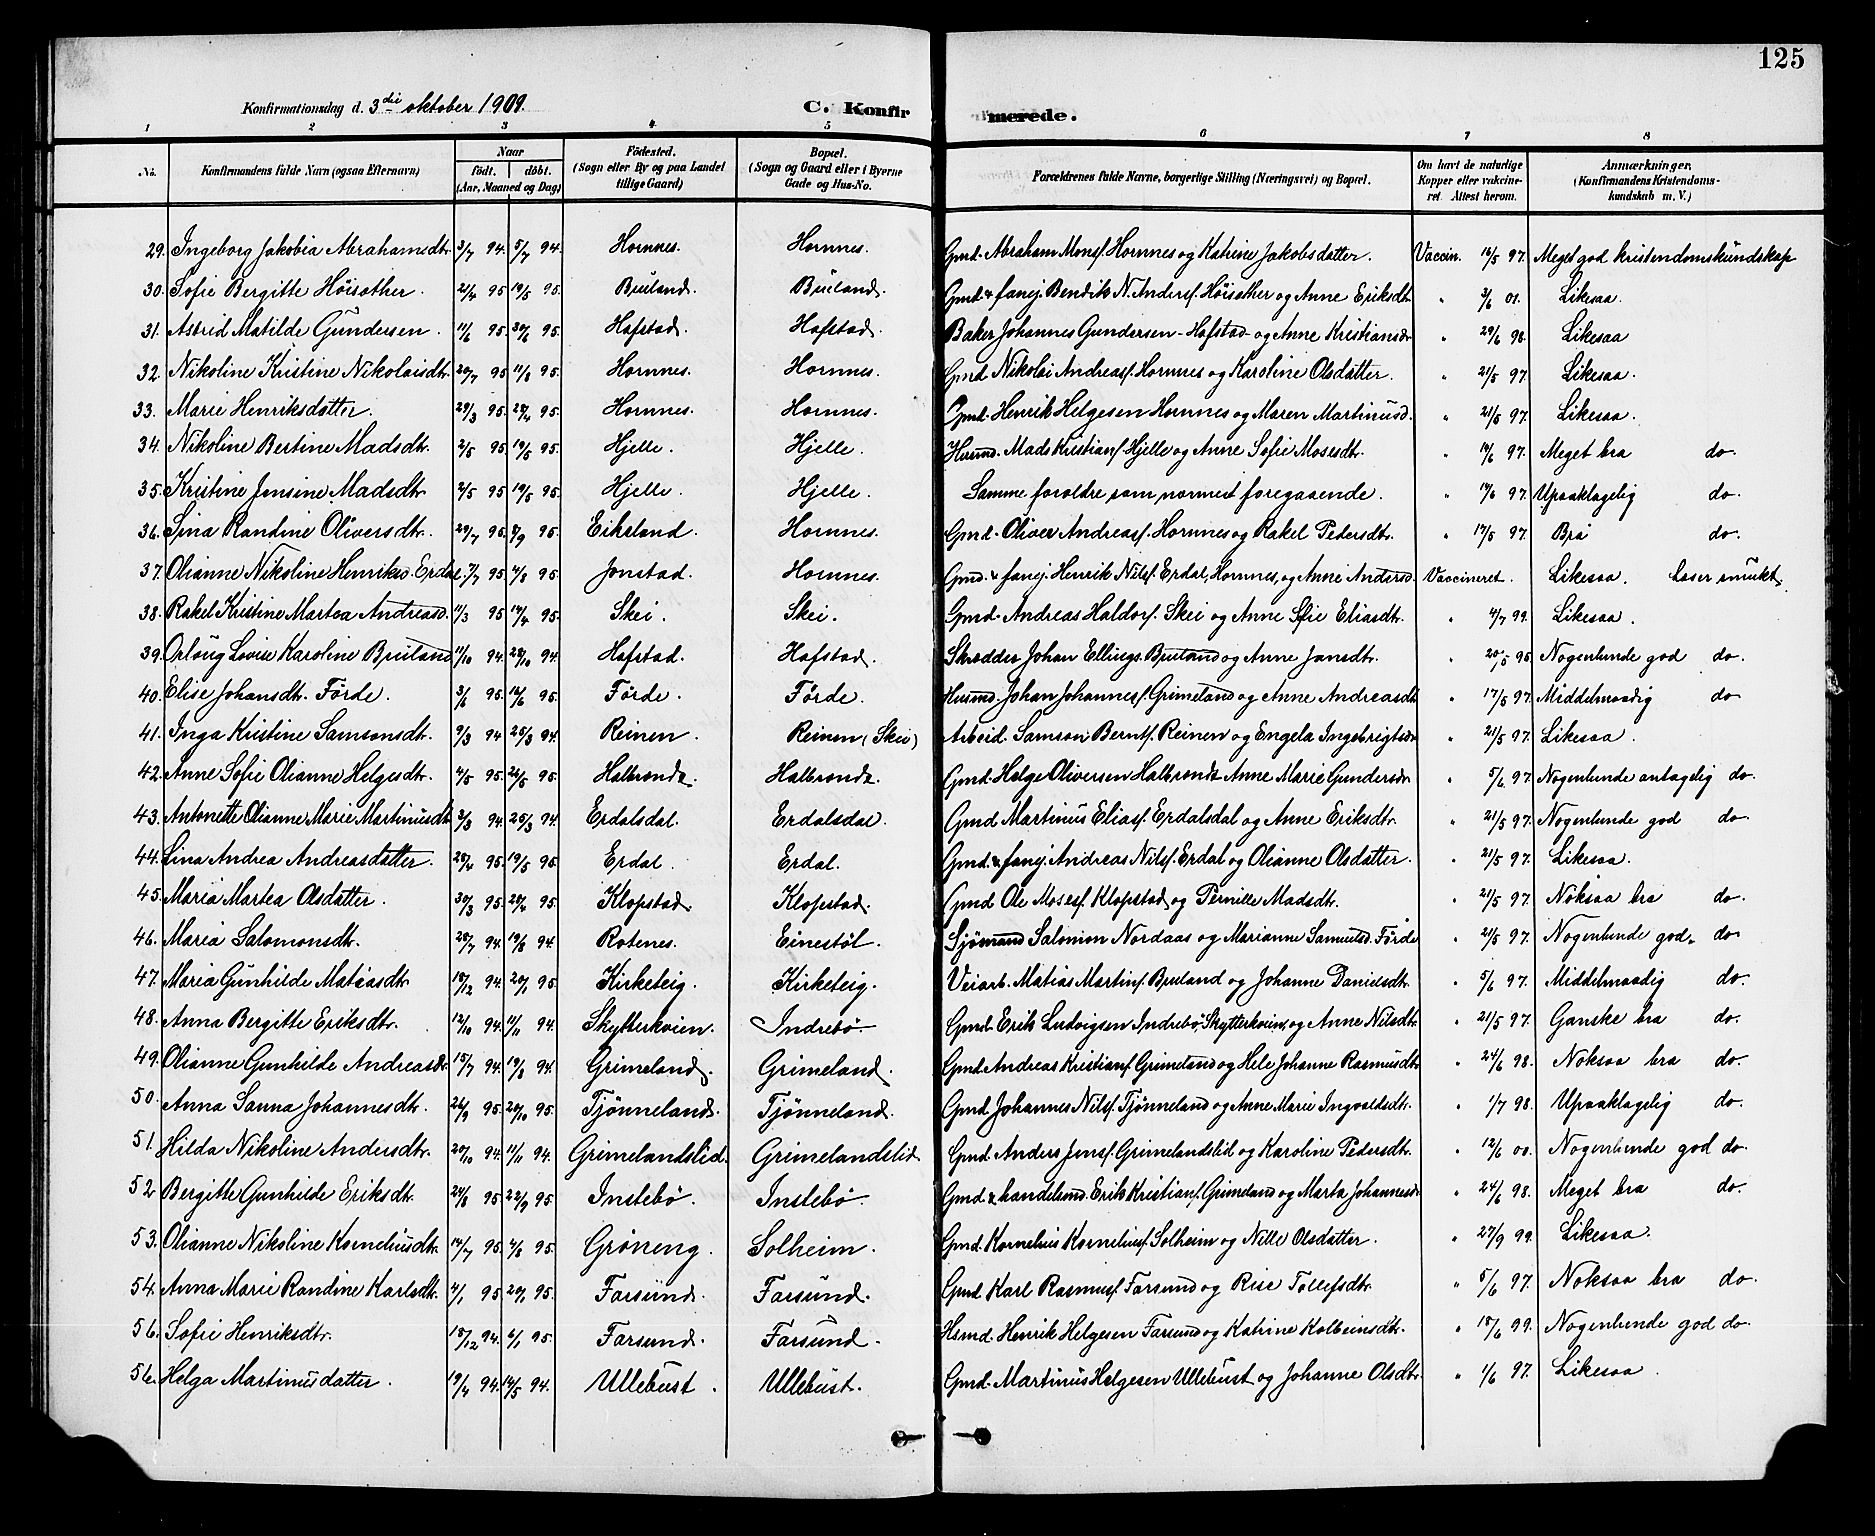 125
Konfirmationsdag d. 3die oktober 1909. C. Konfirmerede.
1 2 3 4 5 6 7 8
No. Konfirmandens fulde Navn (ogsaa Efternavn) Naar født. døbt. (Aar, Maaned og Dag) Fødested. (Sogn eller By og paa Landet tillige Gaard) Bopæl. (Sogn og Gaard eller i Byerne Gade og Hus-No. Forældrenes fulde Navne, borgerlige Stilling (Næringsvei) og Bopæl. Om havt de naturlige Kopper eller vaccineret. Attest herom. Anmærkninger, (Konfirmandens Kristendomskundskab m. V.)
29. Ingeborg Jakobia Abrahamsdtr. 3/7 94. 5/7 94. Hornnes. Hornnes. Gmd. Abraham Monss. Hornnes og Katrine Jakobsdatter. Vaccin. 16/5 97. Meget god kristendomskundskap
30. Sofie Bergitte Höisæther. 21/4 95 19/5 95. Bruland. Bruland. Gmd. & fanej. Bendik N. Anders. Höisæther og Anne Eriksdt. " 3/6 01. Likesaa.
31. Astrid Matilde Gundersen. 11/6 95. 30/6 95. Hafstad. Hafstad. Baker Johannes Gundersen - Hafstad - og Anne Kristiansdr " 29/6 98. Likesaa
32. Nikoline Kristine Nikolaisdtr. 20/7 95 11/8 95. Hornnes. Hornnes. Gmd Nikolai Andreass. Hornnes og Karoline Olsdatter. " 21/5 97. Likesaa.
33. Marie Henriksdatter. 29/3 95. 28/4 95. Hornnes. Hornnes. Gmd. Henrik Helgesen Hornnes og Maren Martinusd. " 21/5 97. Likesaa.
34. Nikoline Bertine Madsdtr. 2/5 95. 19/5 95. Hjelle. Hjelle. Husmd. Mads Kristians. Hjelle og Anne Sofie Mosesdtr. " 14/6 97. Meget bra do.
35. Kristine Jensine Madsdtr 2/5 95 19/5 95. Hjelle. Hjelle. Samme foreldre som nærmest foregaaende. " 14/6 97. Upaaklagelig do.
36. Sina Randine Oliversdtr. 29/7 95. 8/9 95. Eikeland. Hornnes. Gmd. Oliver Andreass. Hornnes og Rakel Pedersdtr. " 17/5 97. Bra do.
37. Olianne Nikoline Henriksd. Erdal. 7/7 95 4/8 95. Jonstad. Hornnes. Gmd. & fanej. Henrik Nilss. Erdal, Hornnes, og Anne Andersd. Vaccineret. Likesaa. Læser smukt.
38. Rakel Kristine Martea Andreasd. 11/3 95 14/4 95. Skei. Skei. Gmd. Andreas Haldors. Skei og Anne Sofie Eliasdtr. " 4/7 99. Likesaa.
39. Orlaug Lovise Karoline Bruland 11/10 94. 28/10 94. Hafstad. Hafstad. Skrædder Johan Ellings. Bruland og Anne Jansdtr. " 20/5 95. Nogenlunde god do.
40. Elise Johansdtr. Førde. 3/6 95. 16/6 95. Førde. Førde. Husmd. Johan Johanness. Grimeland og Anne Andreasdtr " 17/5 97. Middelmaadig do
41. Inga Kristine Samsonsdtr. 9/3 94 25/3 94. Reinen. Reinen (Skei) Arbeid. Samson Bernts. Reinen og Engela Ingebrigtsdr " 21/5 97. Likesaa.
42. Anne Sofie Olianne Helgesdtr. 4/5 95. 26/5 95. Halbrendz. Halbrendz. Gmd. Helge Oliversen Halbrendz Anne Marie Gundersdr " 5/6 97. Nogenlunde antagelig do.
43. Antonette Olianne Marie Martinusdtr 3/3 94. 25/3 94. Erdalsdal. Erdalsdal. Gmd Martinus Eliass. Erdalsdal og Anne Eriksdtr. " 21/5 97. Nogenlunde god do.
44. Lina Andrea Andreasdatter. 28/4 95. 19/5 95. Erdal. Erdal. Gmd. & fanej. Andreas Nilss. Erdal og Olianne Olsdatter. " 21/5 97. Likesaa.
45. Maria Martea Olsdatter. 30/3 95. 28/4 95. Klopstad. Klopstad. Gmd Ole Mosess. Klopstad og Pernille Madsdtr. " 21/5 97. Noksaa bra do.
46. Maria Salomonsdtr. 28/7 94. 19/8 94. Rotenes. Einestøl. Sjömand Salomon Nordaas og Marianne Samuelsd. Förde " 21/5 97. Nogenlunde god. do
47. Maria Gunhilde Matiasdtr 18/12 94. 20/1 95. Kirketeig. Kirketeig. Veiarb. Matias Martins. Bruland og Johanne Danielsdtr. " 5/6 97. Middelmaadig do.
48. Anna Bergitte Eriksdtr. 12/10 94. 11/11 94. Skytterkvien. Indrebö. Gmd. Erik Ludvigsen Indrebö, Skytterkvien, og Anne Nilsdtr. " 21/5 97. Ganske bra do.
49. Olianne Gunhilde Andreasdr 15/7 94. 19/8 94. Grimeland. Grimeland. Gmd. Andreas Kristians. Grimeland og Hele Johanne Rasmusdtr " 24/6 98. Noksaa bra do.
50. Anna Sanna Johannesdtr. 22/9 95. 20/10 95. Tjönneland. Tjönneland. Gmd. Johannes Nilss. Tjönneland og Anne Marie Ingvaldsdtr. " 1/7 98. Upaaklagelig do.
51. Hilda Nikoline Andersdtr. 20/10 94. 11/11 94. Grimelandslid. Grimelandslid. Gmd. Anders Jenss. Grimelandslid og Karoline Pedersdtr. " 12/6 00. Nogenlunde god do.
52 Bergitte Gunhilde Eriksdtr. 24/8 95 22/9 95 Instebö. Instebö. Gmd. & handelsmd. Erik Kristians. Grimeland og Marta Johannesdr " 24/6 98. Meget bra do.
53. Olianne Nikoline Kornelíusdtr. 14/7 95. 4/8 95. Gröneng. Solheim. Gmd. Kornelius Kornelíuss. Solheim og Nille Olsdatter. " 27/9 99. Likesaa.
54. Anna Marie Randine Karlsdtr. 4/1 95 20/1 95. Farsund. Farsund. Gmd Karl Rasmuss. Farsund og Rise Tollefsdtr. " 5/6 97. Noksaa bra do.
55. Sofie Henriksdtr. 18/12 94. 6/1 95. Farsund. Farsund. Hsmd. Henrik Helgesen Farsund og Katrine Kolbeinsdtr. " 18/6 99. Nogenlunde god do.
56. Helga Martinusdatter. 19/4 94. 14/5 94. Ullebust. Ullebust. Gmd. Martinus Helgesen Ullebust og Johanne Olsdtr. " 1/6 97. Likesaa.